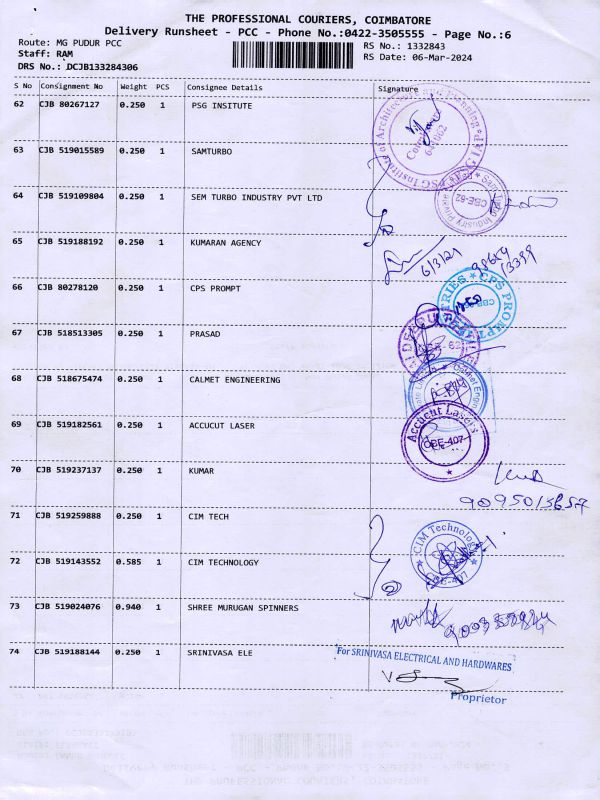 THE PROFESSIONAL COURIERS, COIMBATORE
Delivery Runsheet - PCC - Phone No.:0422-3505555 - Page No.:6
Route: MG PUDUR PCC
RS No.: 1332843
Staff: RAM
RS Date: 06-Mar-2024
DRS No.: DCJB133284306
S No Consignment No Weight PCS Consignee Details Signature
62 CJB 80267127 0.250 1 PSG INSITUTE
63 CJB 519015589 0.250 1 SAMTURBO
64 CJB 519109804 0.250 1 SEM TURBO INDUSTRY PVT LTD
CBE-62
65 CJB 519188192 0.250 1 KUMARAN AGENCY
66 CJB 80278120 0.250 1 CPS PROMPT
CPS PROMPT
67 CJB 518513305 0.250 1 PRASAD
68 CJB 518675474 0.250 1 CALMET ENGINEERING
69 CJB 519182561 0.250 1 ACCUCUT LASER
Accucut Lasers
CBE-407
70 CJB 519237137 0.250 1 KUMAR
71 CJB 519259888 0.250 1 CIM TECH
CIM Technology
72 CJB 519143552 0.585 1 CIM TECHNOLOGY
73 CJB 519024076 0.940 1 SHREE MURUGAN SPINNERS
74 CJB 519188144 0.250 1 SRINIVASA ELE
For SRINIVASA ELECTRICAL AND HARDWARES
Proprietor